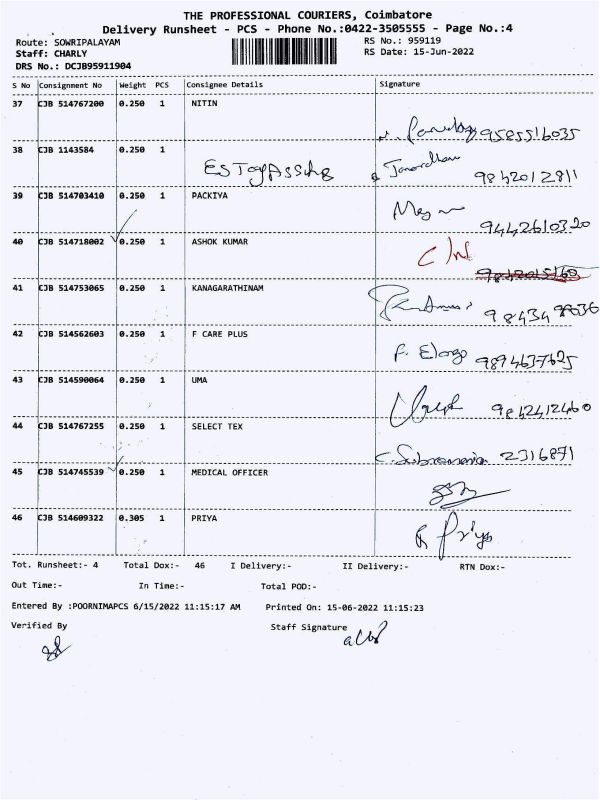 THE PROFESSIONAL COURIERS, Coimbatore
Delivery Runsheet - PCS - Phone No.:0422-3505555 - Page No.:4
Route: SOWRIPALAYAM RS No.: 959119
Staff: CHARLY RS Date: 15-Jun-2022
DRS No.: DCJB95911904
S No Consignment No Weight PCS Consignee Details Signature
37 CJB 514767200 0.250 1 NITIN
9585516035
38 CJB 1143584 0.250 1 Janardhan
9842012811
39 CJB 514703410 0.250 1 PACKIYA
9442610320
40 CJB 514718002 0.250 1 ASHOK KUMAR
41 CJB 514753065 0.250 1 KANAGARATHINAM
42 CJB 514562603 0.250 1 F CARE PLUS
F. Elango 9894637625
43 CJB 514590064 0.250 1 UMA
9842412460
44 CJB 514767255 0.250 1 SELECT TEX
C. Subramania 2316871
45 CJB 514745539 0.250 1 MEDICAL OFFICER
46 CJB 514609322 0.305 1 PRIYA
R Priya
Tot. Runsheet:- 4 Total Dox:- 46 I Delivery:- II Delivery:- RTN Dox:-
Out Time:- In Time:- Total POD:-
Entered By :POORNIMAPCS 6/15/2022 11:15:17 AM Printed On: 15-06-2022 11:15:23
Verified By Staff Signature